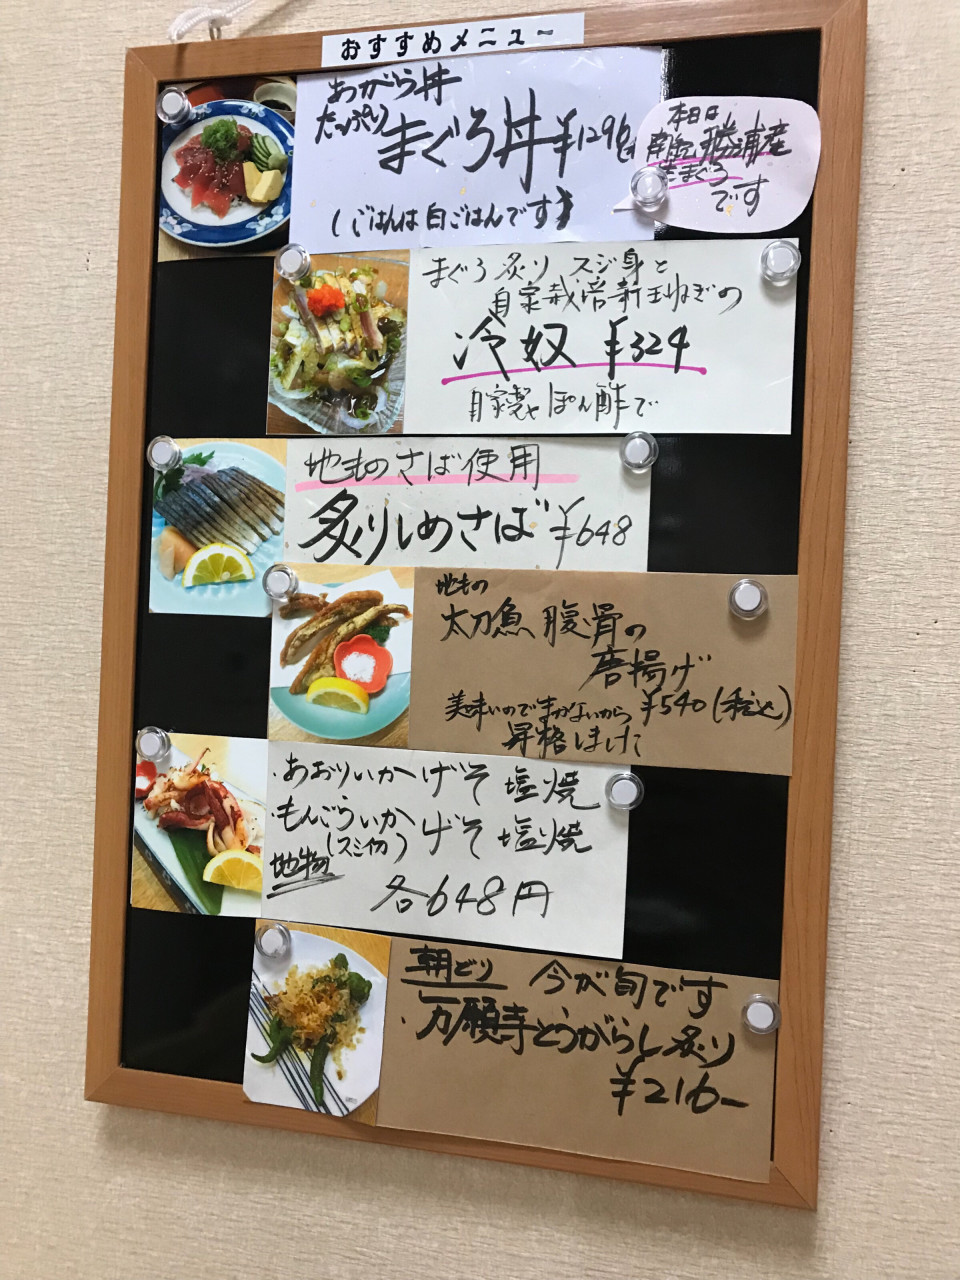 おすすめメニュー
あがら丼
たっぷり
まぐろ丼 ¥1296
(ごはんは白ごはんです)
本日は
南紀勝浦産
生まぐろ
です
まぐろ炙りスジ身と
自家栽培新玉ねぎの
冷奴 ¥324
自家製ぽん酢で
地ものさば使用
炙りしめさば ¥648
地もの
太刀魚腹骨の
唐揚げ
美味いのでまかないから ¥540(税込)
昇格しました
・あおりいかげそ塩焼
・もんごういかげそ塩焼
(スミイカ)
地物
各648円
朝どり 今が旬です
・万願寺とうがらし炙り
¥216-